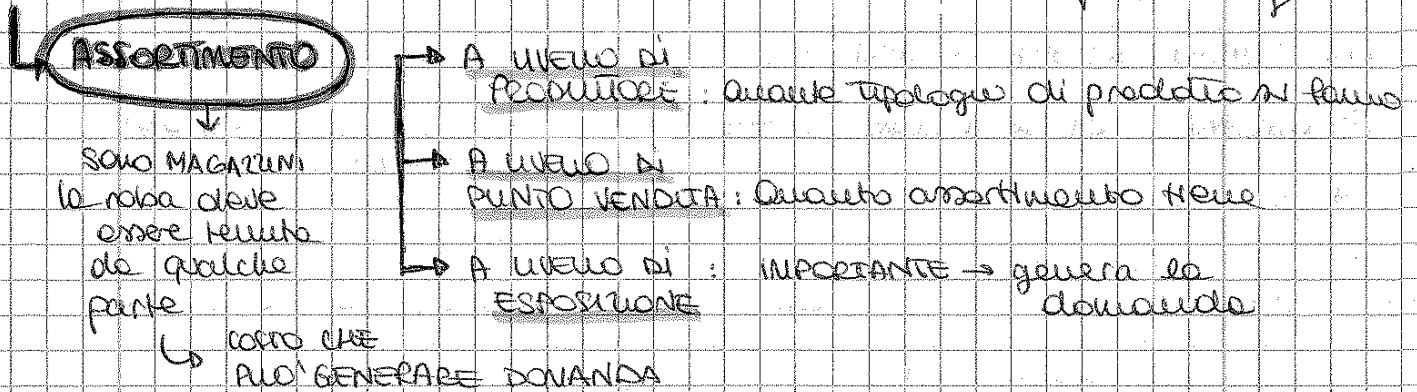 ASSORTIMENTO
SONO MAGAZZINI
la roba deve
essere tenuta
da qualche
parte
COSTO CHE
PUO' GENERARE DOMANDA
A LIVELLO DI
PRODUTTORE : Quante tipologie di prodotto si fanno
A LIVELLO DI
PUNTO VENDITA : Quanto assortimento tiene
A LIVELLO DI : IMPORTANTE → genera la
ESPOSIZIONE domanda